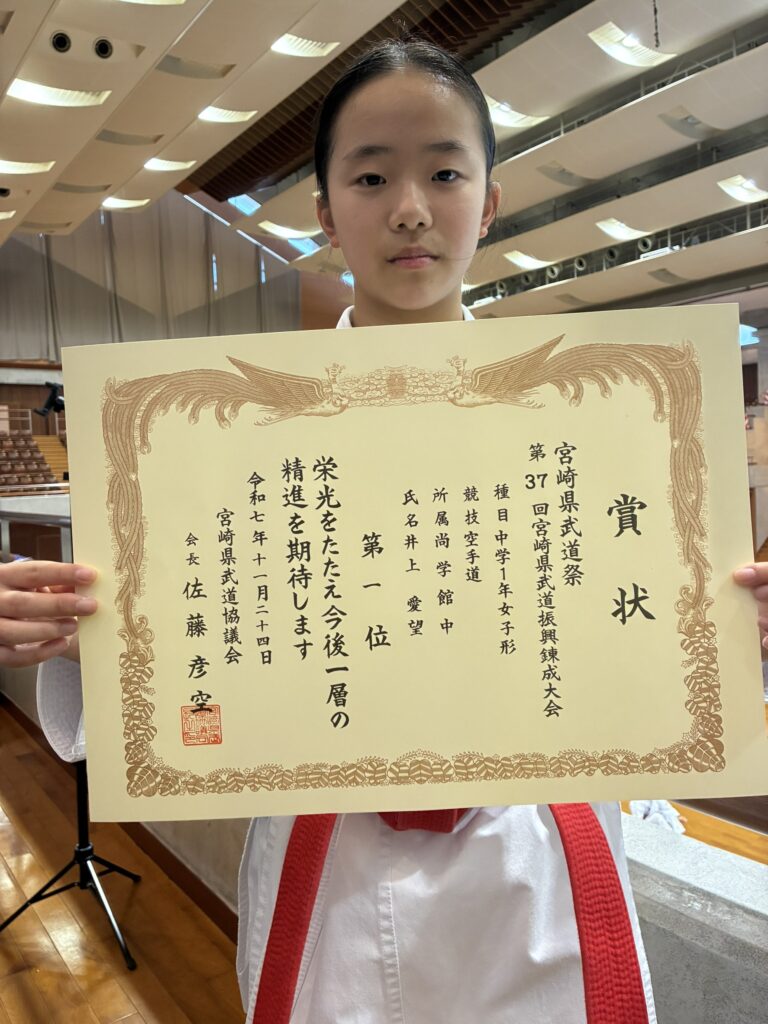 賞状
宮崎県武道祭
第37回宮崎県武道振興錬成大会
種目中学1年女子形
競技空手道
所属尚学館中
氏名井上 愛望
第一位
栄光をたたえ今後一層の
精進を期待します
令和七年十一月二十四日
宮崎県武道協議会
会長 佐藤彦空